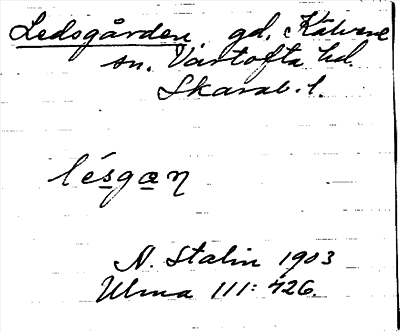 Ledsgården, gd. Kälvene
sn. Vartofta hd.
Skarab. l.
lésgæn
N. Stalin 1903
Ulma 111:426.